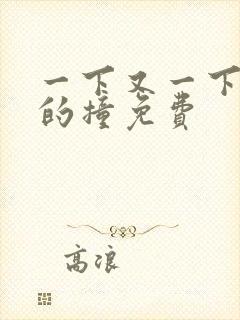 一下又一下
的撞免费
高浪